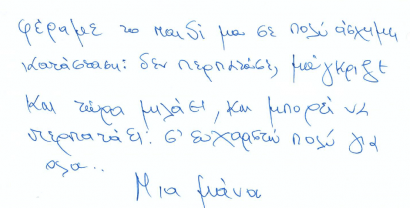 φέραμε το παιδί μου σε πολύ άσχημη
κατάσταση: δεν περπατάσε, μούγκριζε
και τώρα μιλάει, και μπορεί να
περπατάει. σ' ευχαριστώ πολύ για
ολα..
Μια μάνα